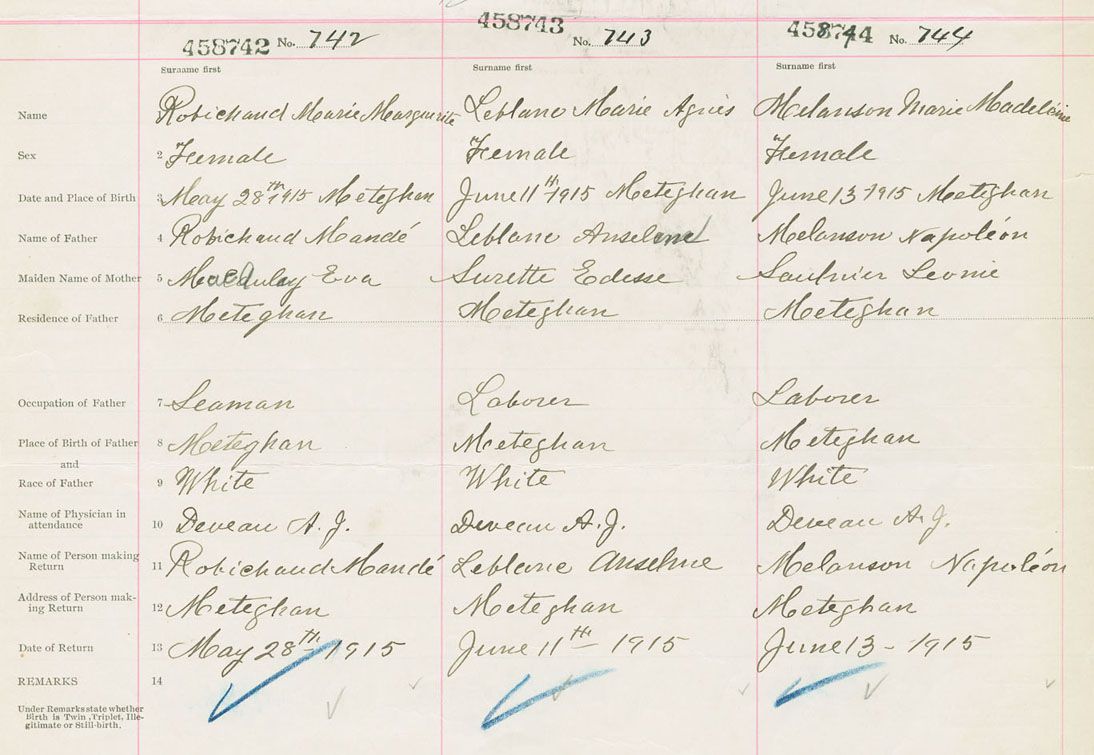 458742 No. 742 458743 No. 743 458744 No. 744
Surname first Surname first Surname first
Name Robichaud Marie Marguerite Leblanc Marie Agnès Melanson Marie Madeleine
Sex 2 Female Female Female
Date and Place of Birth 3 May 28th 1915 Meteghan June 11th 1915 Meteghan June 13 1915 Meteghan
Name of Father 4 Robichaud Mandé Leblanc Anselme Melanson Napoléon
Maiden Name of Mother 5 Eva Surette Edesse Saulnier Leonie
Residence of Father 6 Meteghan Meteghan Meteghan
Occupation of Father 7 Seaman Laborer Laborer
Place of Birth of Father 8 Meteghan Meteghan Meteghan
and
Race of Father 9 White White White
Name of Physician in
attendance 10 Deveau A. J. Deveau A. J. Deveau A. J.
Name of Person making
Return 11 Robichaud Mandé Leblanc Anselme Melanson Napoléon
Address of Person mak-
ing Return 12 Meteghan Meteghan Meteghan
Date of Return 13 May 28th 1915 June 11th - 1915 June 13 - 1915
REMARKS 14
Under Remarks state whether
Birth is Twin, Triplet, Ille-
gitimate or Still-birth.